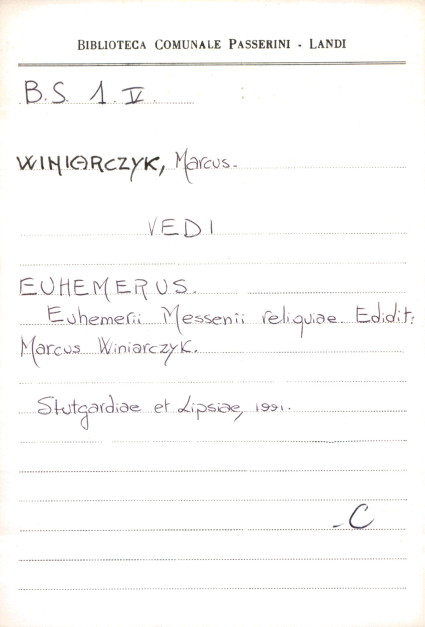 BIBLIOTECA COMUNALE PASSERINI - LANDI
B.S. 1. IV.
WINIARCZYK, Marcus.
VEDI
EUHEMERUS.
Euhemerii Messenii reliquiae. Edidit:
Marcus Winiarczyk.
Stutgardiae et Lipsiae, 1991.
-C